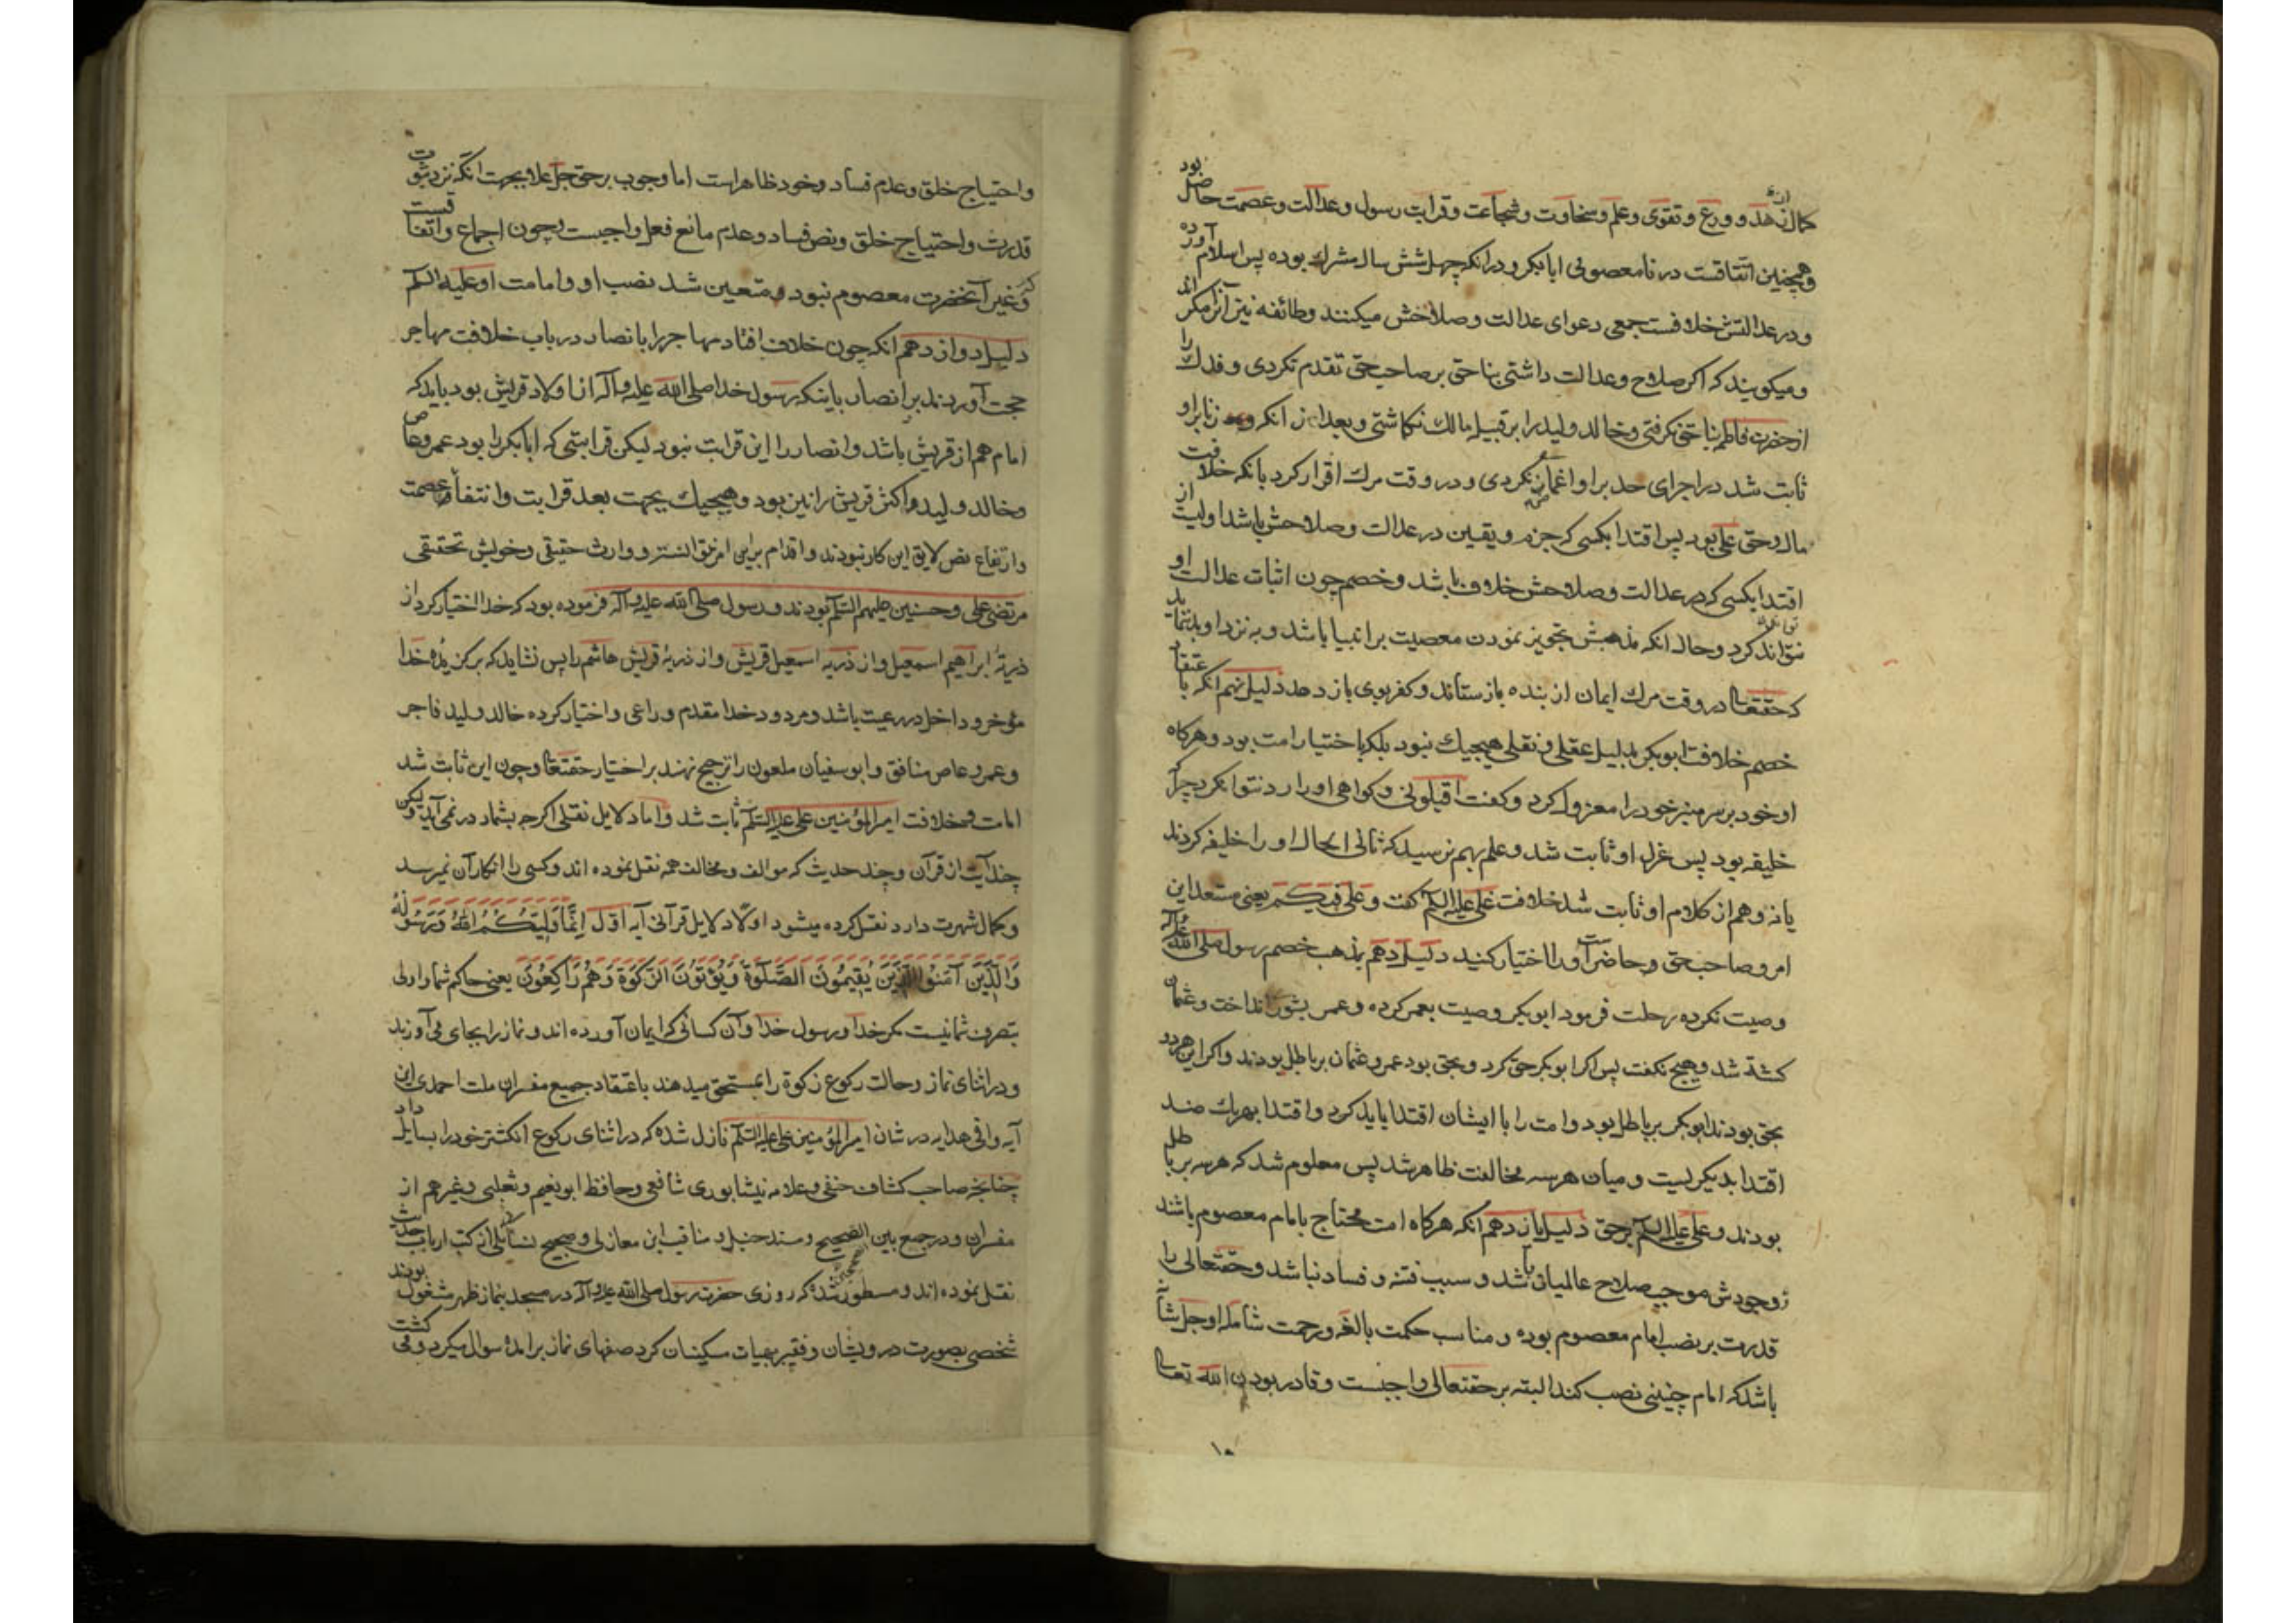 کمال زهد و ورع و تقوی و علم و سخاوت و شجاعت و قرابت رسول و عدالت و عصمت حاصل بود
وهمچنین اتفاقست در نامعصومی ابابکر و در انکه چهل شش سال مشرك بوده پس اسلام آورده
و در عدالتش خلافست جمعی دعوای عدالت و صلاحش میکنند وطائفه نیز آنرا منکر اند
و میکویند که اکر صلاح و عدالت داشتی بناحق بر صاحب حق تقدم نکردی و فدك را
از حضرت فاطمه بناحق نکرفتی و خالد ولید را بر قبیله مالك نکماشتی و بعد از انکه زنا براو
ثابت شد در اجرای حد براو اغماض نکردی و در وقت مرك اقرار کرد بانکه خلافت
مال و حق علی بود پس اقتدا بکسی که جزم و یقین در عدالت و صلاحش باشد اولیست از
اقتدا بکسی که در عدالت و صلاحش خلاف باشد و خصم چون اثبات عدالت او
نتواند کرد و حال انکه مذهبش تجویز نمودن معصیت بر انبیا باشد و به نزد او بد نماید
که حقتعالی در وقت مرك ایمان از بنده بازستاند و کفر بوی باز دهد دلیل نهم انکه باعتقاد
خصم خلافت ابوبکر بدلیل عقلی و نقلی هیچیك نبود بلکه باختیار امت بود و هرکاه
او خود بر سر منبر خود را معزول کرد و کفت اقیلونی و کواهی او را رد نتوانکرد چرا که
خلیفه بود پس عزل او ثابت شد و علم بهم نرسید که ثانی الحال او را خلیفه کردند
یا نه و هم از کلام او ثابت شد خلافت علی علیه السلم کفت و علی فیکم یعنی مستعد این
امر و صاحب حق و حاضرست او را اختیار کنید دلیل دهم بمذهب خصم رسول صلی الله علیه وآله
وصیت نکرده رحلت فرمود ابوبکر وصیت بعمر کرده و عمر بشوری انداخت و عثمان
کشته شد و هیچ نکفت پس اکر ابوبکر حق کرد و بحق بود عمر و عثمان بر باطل بودند و اکر این هر دو
بحق بودند ابوبکر بر باطل بود و امت را با ایشان اقتدا باید کرد و اقتدا بهریك ضد
اقتدا بدیکریست و میان هر سه مخالفت ظاهر شد پس معلوم شد که هر سه بر باطل
بودند و علی علیه السلم بر حق دلیل یازدهم انکه هرکاه امت محتاج بامام معصوم باشد
و وجودش موجب صلاح عالمیان باشد و سبب فتنه و فساد نباشد و حقتعالی را
قدرت بر نصب امام معصوم بوده و مناسب حکمت بالغه و رحمت شامله او جل شانه
باشد که امام چنینی نصب کند البته بر حقتعالی واجبست و قادر بودن الله تعالی
۱۰
واحتیاج خلق و عدم فساد و خود ظاهراست اما وجوب بر حق جل و علا بجهت انکه نزد ثبوت
قدرت واحتیاج خلق و نص فساد و عدم مانع فعل واجبست و چون اجماع و اتفاقست
که غیر آنحضرت معصوم نبود متعین شد نصب او و امامت او علیه السلم
دلیل دوازدهم انکه چون خلاف افتاد مهاجر را با نصار در باب خلافت مهاجر
حجت آوردند بر انصار باینکه رسول خدا صلی الله علیه وآله از اولاد قریش بود باید که
امام هم از قریش باشد و انصار را این قرابت نبود لیکن قرابتی که ابابکر را بود عمرو عاص
و خالد ولید و اکثر قریش را نیز بود و هیچیك بجهت بعد قرابت وانتفاء عصمت
و ارتفاع نص لایق این کار نبودند و اقدام براین امر و وارث حقیقی و خویش تحقیقی
مرتضی علی و حسنین علیهم السلم بودند و رسول صلی الله علیه وآله فرموده بود که خدا اختیار کرد از
ذریه ابراهیم اسمعیل و از ذریه اسمعیل قریش و از ذریه قریش هاشم را پس نشاید که برکزیده خدا
مؤخر و داخل در رعیت باشد و مردود خدا مقدم و راعی و اختیار کرده خالد ولید فاجر
و عمرو عاص منافق و ابوسفیان ملعون را ترجیح نهند بر اختیار حقتعالی و چون این ثابت شد
امامت و خلافت امیرالمؤمنین علی علیه السلم ثابت شد و اما دلایل نقلی اکرچه بشمار در نمی آید ولیکن
چند آیت از قرآن و چند حدیث که موالف و مخالف همه نقل نموده اند و کسی را انکار آن نمیرسد
و کمال شهرت دارد نقل کرده میشود اولا دلایل قرآنی آیه اول اِنَّمَا وَلِیُّکُمُ اللهُ وَرَسُولُهُ
وَالَّذِینَ آمَنُوا الَّذِینَ یُقِیمُونَ الصَّلٰوةَ وَیُؤْتُونَ الزَّکٰوةَ وَهُمْ رَاکِعُونَ یعنی حاکم شما و اولی
بتصرف شما نیست مکر خدا و رسول خدا و آن کسانی که ایمان آورده اند و نماز را بجای می آورند
و در اثنای نماز و حالت رکوع زکوة را بمستحق میدهند باعتقاد جمیع مفسران ملت احمدی این
آیه وافی هدایه در شان امیرالمؤمنین علی علیه السلم نازل شده که در اثنای رکوع انکشتر خود را بسایل داد
چنانچه صاحب کشاف حنفی و علامه نیشابوری شافعی و حافظ ابونعیم و ثعلبی و غیرهم از
مفسران و در جمع بین الصحیح و مسند حنبل و مناقب ابن مغازلی و صحیح نسائی و از کتب ارباب حدیث
نقل نموده اند و مسطور شده که روزی حضرت رسول صلی الله علیه وآله در مسجد بنماز ظهر مشغول بودند
شخصی بصورت درویشان و فقیر بهیات مسکینان کرد صفهای نماز برآمده سوال میکرد و می کشت